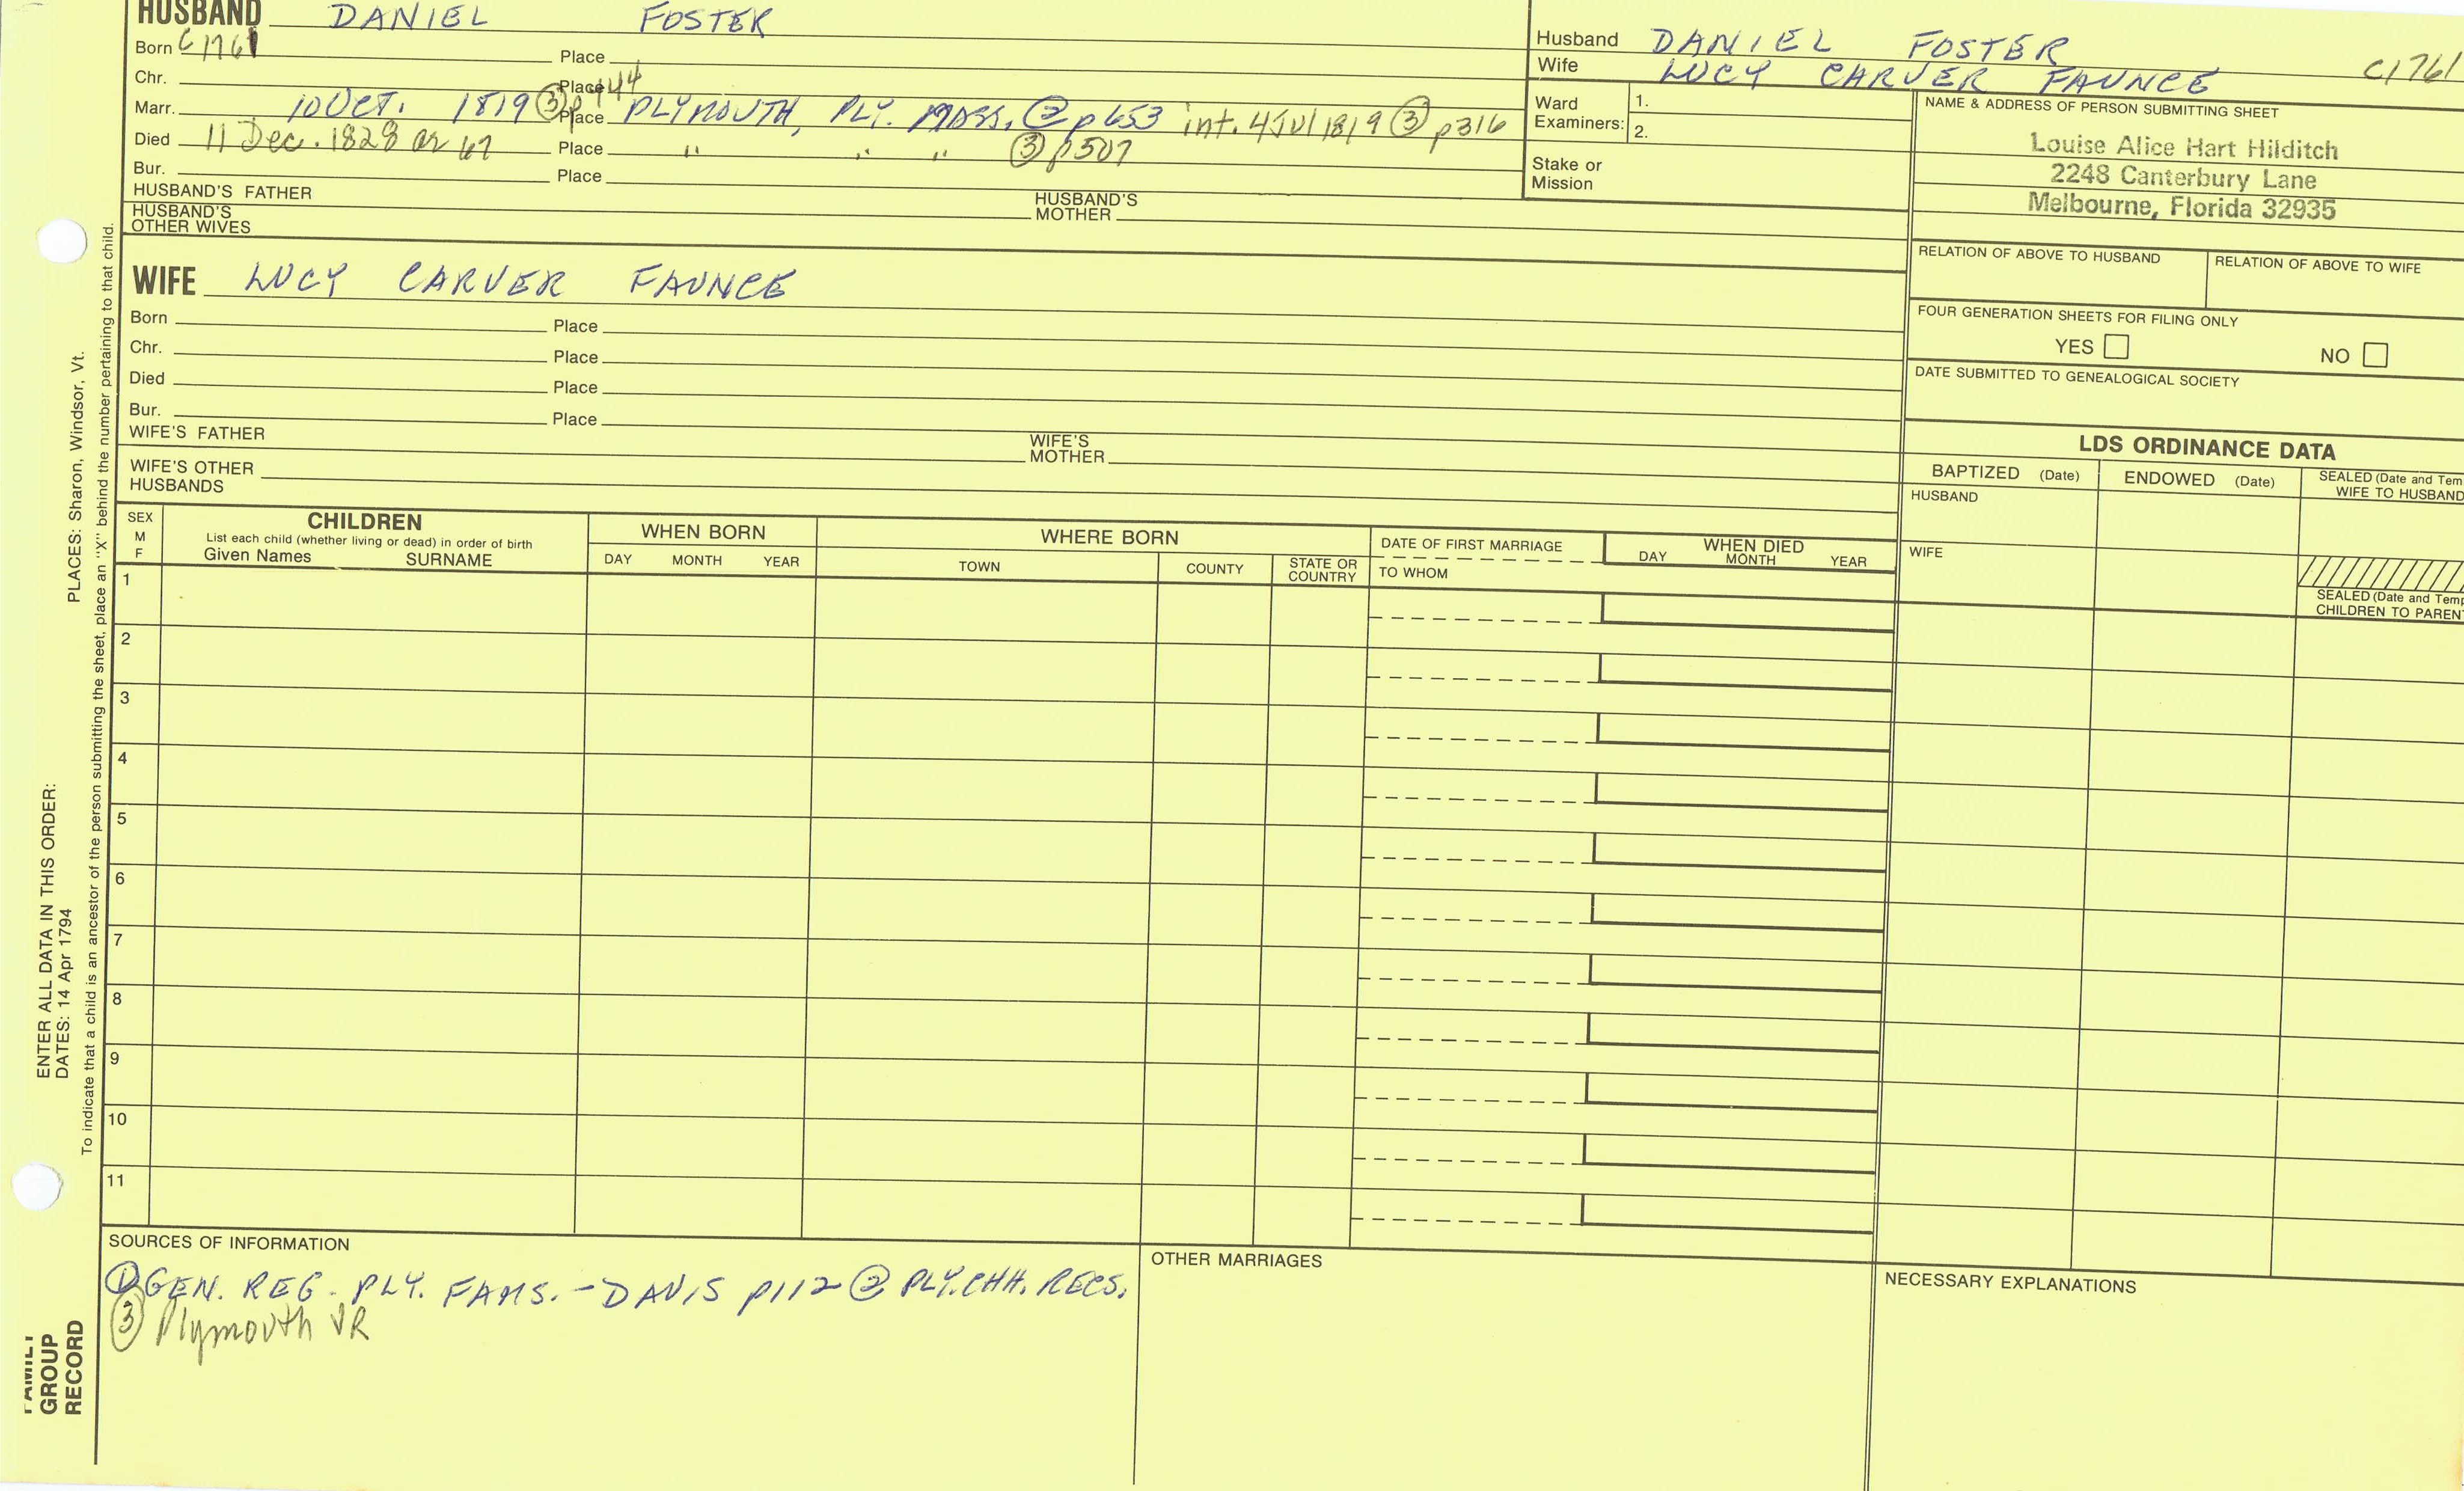 HUSBAND DANIEL FOSTER
Born C1761 Place
Chr. Place
Marr. 10 OCT. 1819 ③ p444 Place PLYMOUTH, PLY. MASS. ② p653 int. 4 Jul 1819 ③ p316
Died 11 Dec. 1828 ae 67 Place " " " ③ p507
Bur. Place
HUSBAND'S FATHER HUSBAND'S MOTHER
HUSBAND'S OTHER WIVES
Husband DANIEL FOSTER C1761
Wife LUCY CARVER FAUNCE
Ward Examiners: 1.
2.
Stake or Mission
NAME & ADDRESS OF PERSON SUBMITTING SHEET
Louise Alice Hart Hilditch
2248 Canterbury Lane
Melbourne, Florida 32935
RELATION OF ABOVE TO HUSBAND RELATION OF ABOVE TO WIFE
FOUR GENERATION SHEETS FOR FILING ONLY
YES NO
DATE SUBMITTED TO GENEALOGICAL SOCIETY
WIFE LUCY CARVER FAUNCE
Born Place
Chr. Place
Died Place
Bur. Place
WIFE'S FATHER WIFE'S MOTHER
WIFE'S OTHER HUSBANDS
LDS ORDINANCE DATA
BAPTIZED (Date) ENDOWED (Date) SEALED (Date and Tem
WIFE TO HUSBAND
HUSBAND
WIFE
SEALED (Date and Temp
CHILDREN TO PARENT
SEX
M
F
CHILDREN
List each child (whether living or dead) in order of birth
Given Names SURNAME
WHEN BORN
DAY MONTH YEAR
WHERE BORN
TOWN COUNTY STATE OR COUNTRY
DATE OF FIRST MARRIAGE
TO WHOM
WHEN DIED
DAY MONTH YEAR
1
2
3
4
5
6
7
8
9
10
11
SOURCES OF INFORMATION
① GEN. REG. PLY. FAMS. - DAVIS p112 ② PLY. CHH. RECS.
③ Plymouth VR
OTHER MARRIAGES
NECESSARY EXPLANATIONS
FAMILY
GROUP
RECORD
ENTER ALL DATA IN THIS ORDER:
DATES: 14 Apr 1794
PLACES: Sharon, Windsor, Vt.
To indicate that a child is an ancestor of the person submitting the sheet, place an "X" behind the number pertaining to that child.